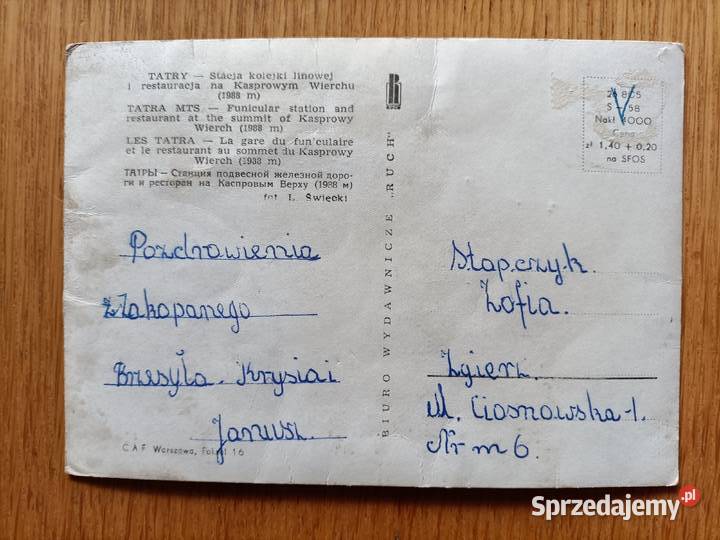 TATRY — Stacja kolejki linowej
i restauracja na Kasprowym Wierchu
(1988 m)
TATRA MTS — Funicular station and
restaurant at the summit of Kasprowy
Wierch (1988 m)
LES TATRA — La gare du fun'culaire
et le restaurant au sommet du Kasprowy
Wierch (1988 m)
ТАТРЫ — Станция подвесной железной доро-
ги и ресторан на Каспровым Верху (1988 м)
fot L. Święcki
Pozdrowienia
z Zakopanego
Przesyła. Krysia i
Janusz.
C A F Warszawa, Foksal 16
BIURO WYDAWNICZE „RUCH"
S — 58
Nakł 4000
Cena
zł 1,40 + 0,20
na SFOS
Stapczyk.
Zofia.
Zgierz.
ul. Ciosnowska-1.
Nr m 6.
Sprzedajemy.pl